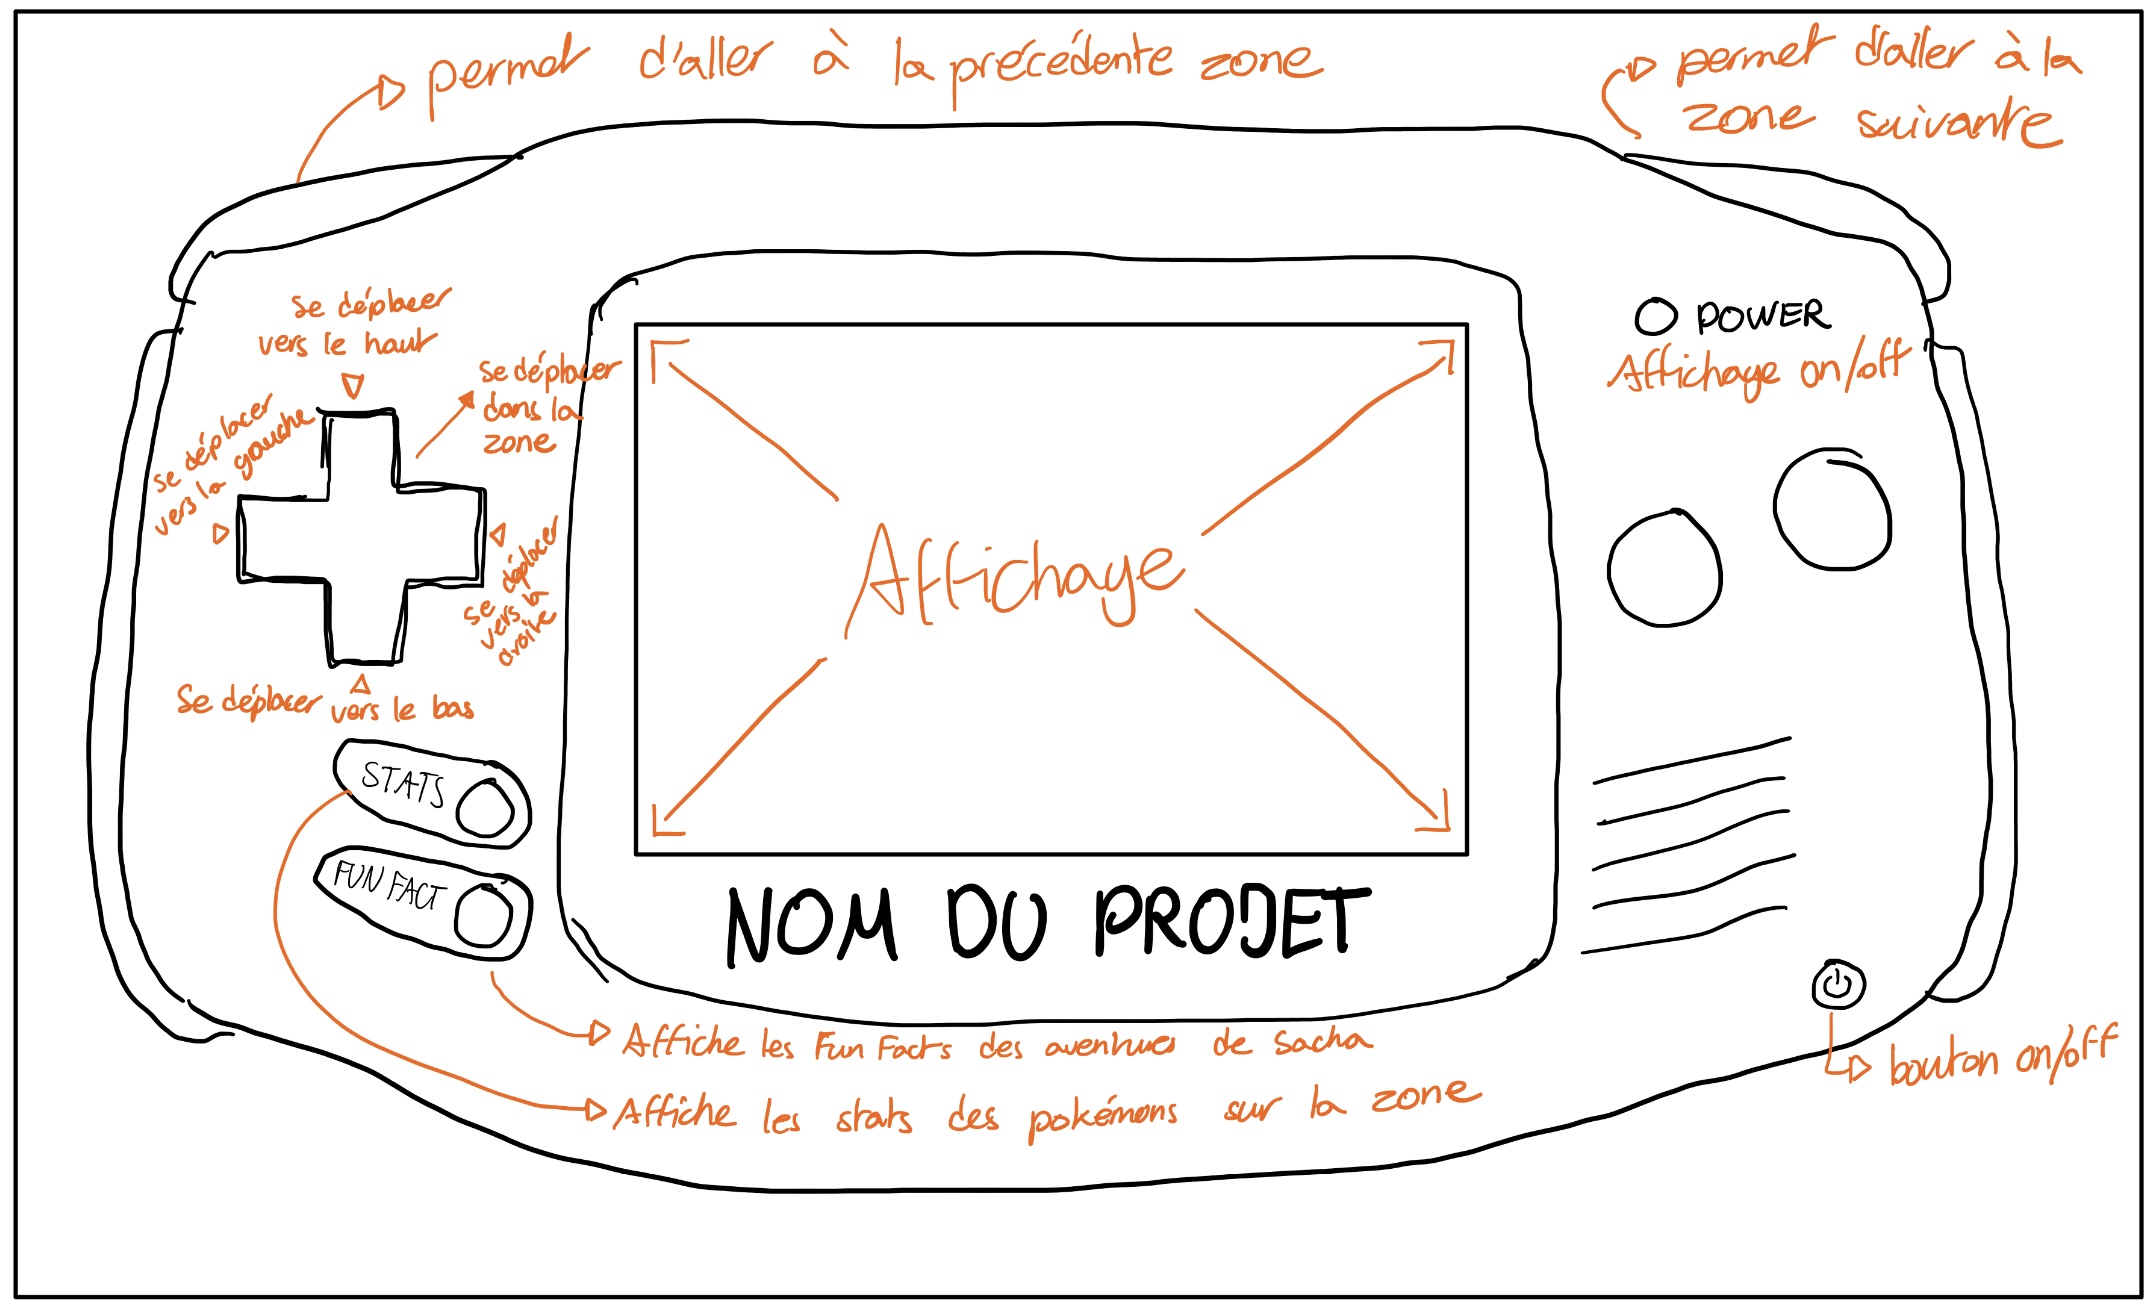 permet d'aller à la précédente zone
permet d'aller à la
zone suivante
Se déplacer
vers le haut
Se déplacer
dans la
zone
se déplacer
vers la gauche
se déplacer
vers la
droite
Se déplacer vers le bas
POWER
Affichage on/off
Affichage
STATS
FUN FACT
NOM DU PROJET
Affiche les Fun Facts des aventures de Sacha
Affiche les stats des pokémons sur la zone
bouton on/off